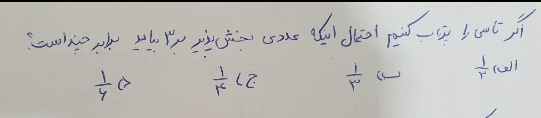 اگر تاسی را پرتاب کنیم احتمال اینکه عددی بخش پذیر بر ۳ بیاید برابر چند است؟
الف) ۱/۲ ب) ۱/۳ ج) ۱/۴ د) ۱/۶